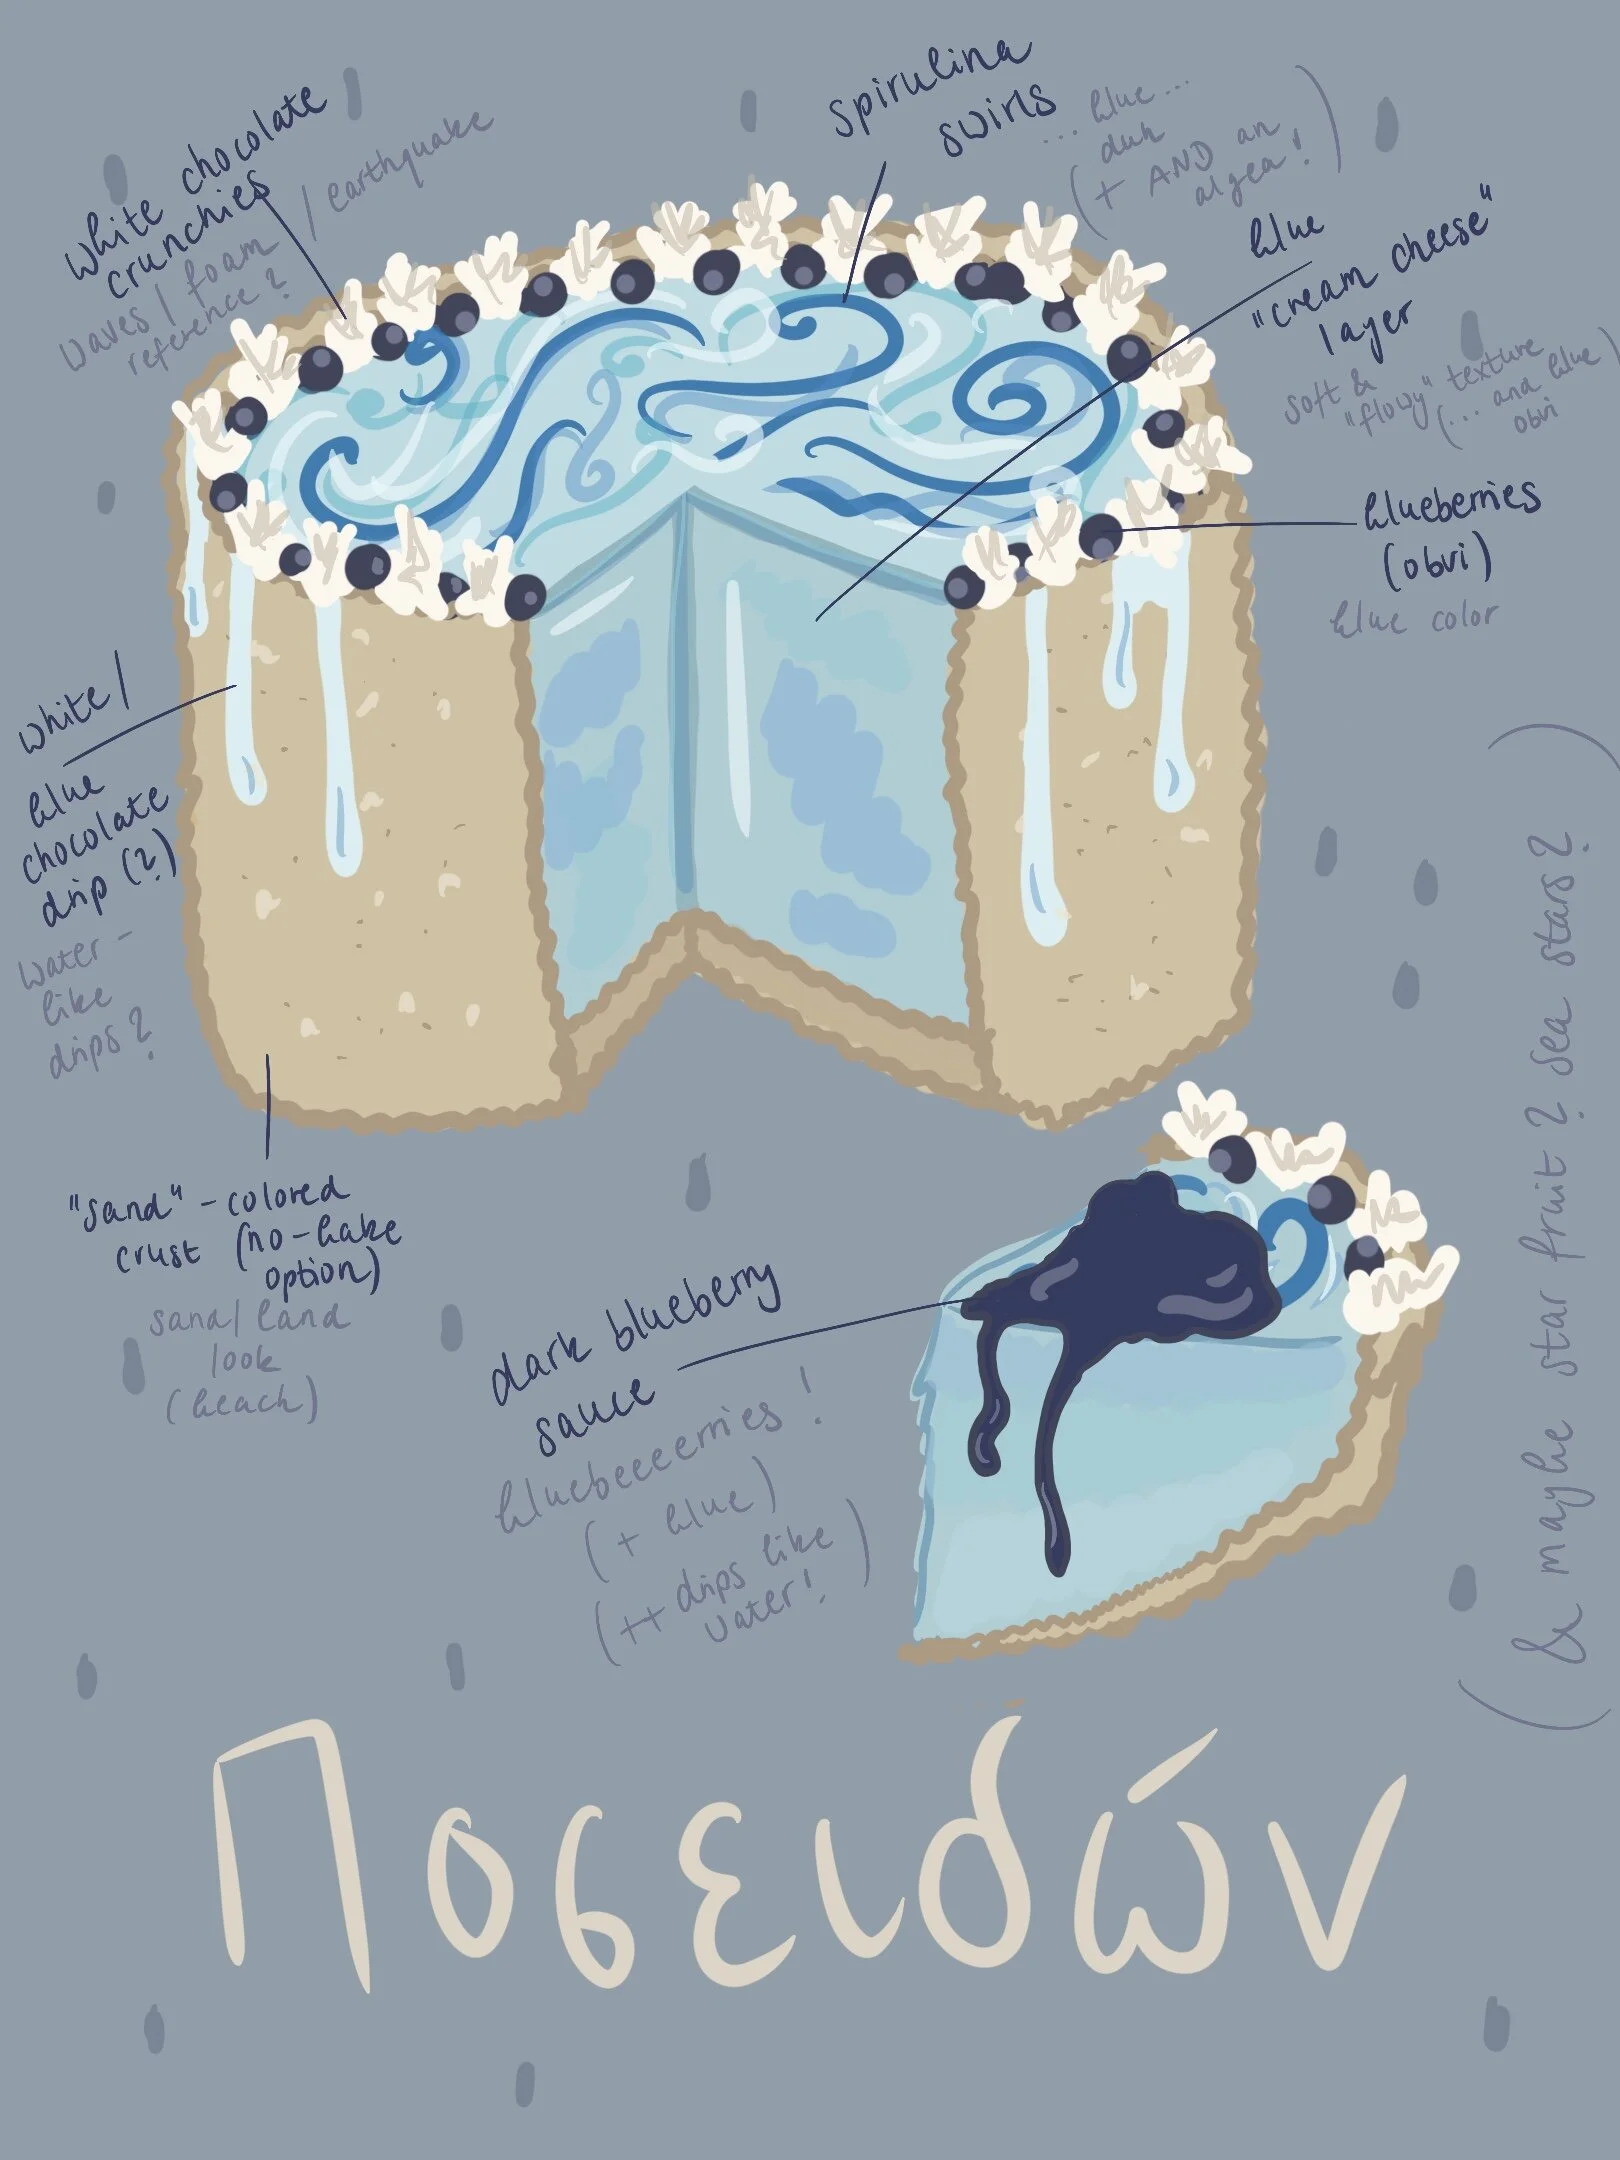 white chocolate
crunchies
waves / foam / earthquake
reference?
spirulina
swirls
... blue...
duh
(+ AND an
algea!)
blue
"cream cheese"
layer
soft &
"flowy" texture
(... and blue)
obvi
blueberries
(obvi)
blue color
white /
blue
chocolate
drip (?)
water-
like
drips?
"sand"-colored
crust (no-bake
option)
sand/land
look
(beach)
dark blueberry
sauce
bluebeeeerries!
(+ blue)
(++ drips like
water!)
(& maybe star fruit? sea stars?)
Ποσειδών